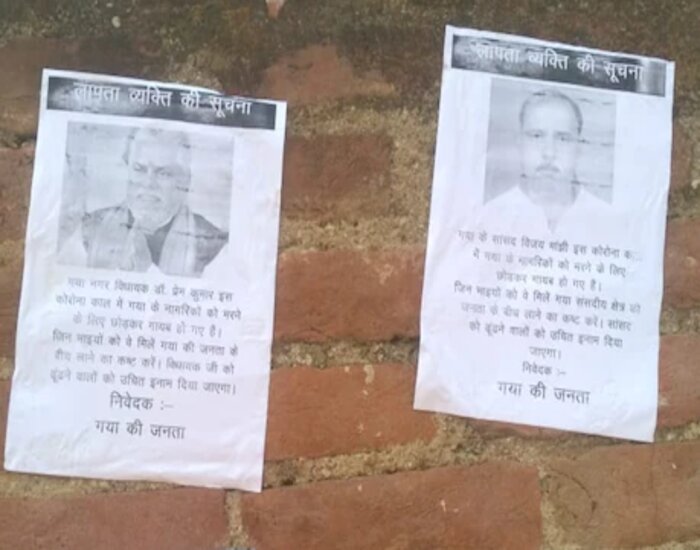 लापता व्यक्ति की सूचना
गया नगर विधायक डॉ. प्रेम कुमार इस
कोरोना काल में गया के नागरिकों को मरने
के लिए छोड़कर गायब हो गए हैं।
जिन भाइयों को वे मिलें गया की जनता के
बीच लाने का कष्ट करें। विधायक जी को
ढूंढने वालों को उचित इनाम दिया जाएगा।
निवेदक :–
गया की जनता
लापता व्यक्ति की सूचना
गया के सांसद विजय मांझी इस कोरोना का...
में गया के नागरिकों को मरने के लिए
छोड़कर गायब हो गए हैं।
जिन भाइयों को वे मिलें गया संसदीय क्षेत्र की
जनता के बीच लाने का कष्ट करें। सांसद
को ढूंढने वालों को उचित इनाम दिया
जाएगा।
निवेदक :–
गया की जनता